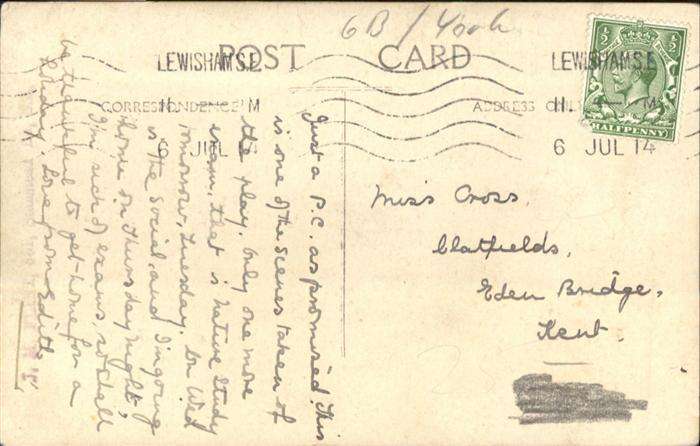 6B / York
POST CARD
LEWISHAM S.E
11. M
6 JUL 14
LEWISHAM S.E
11. M
6 JUL 14
CORRESPONDENCE
ADDRESS ONLY
½ ½
HALFPENNY
Just a P.C. as promised. This
is one of the scenes taken of
the play. Only one more
exam, that is nature study
tomorrow, Tuesday. On Wed
is the Social, and I'm going
home on Thursday night,
I'm sick of exams, so shall
be thankful to get home for a
holiday. Love from Edith
Miss Cross.
Clatfields,
Eden Bridge,
Kent.